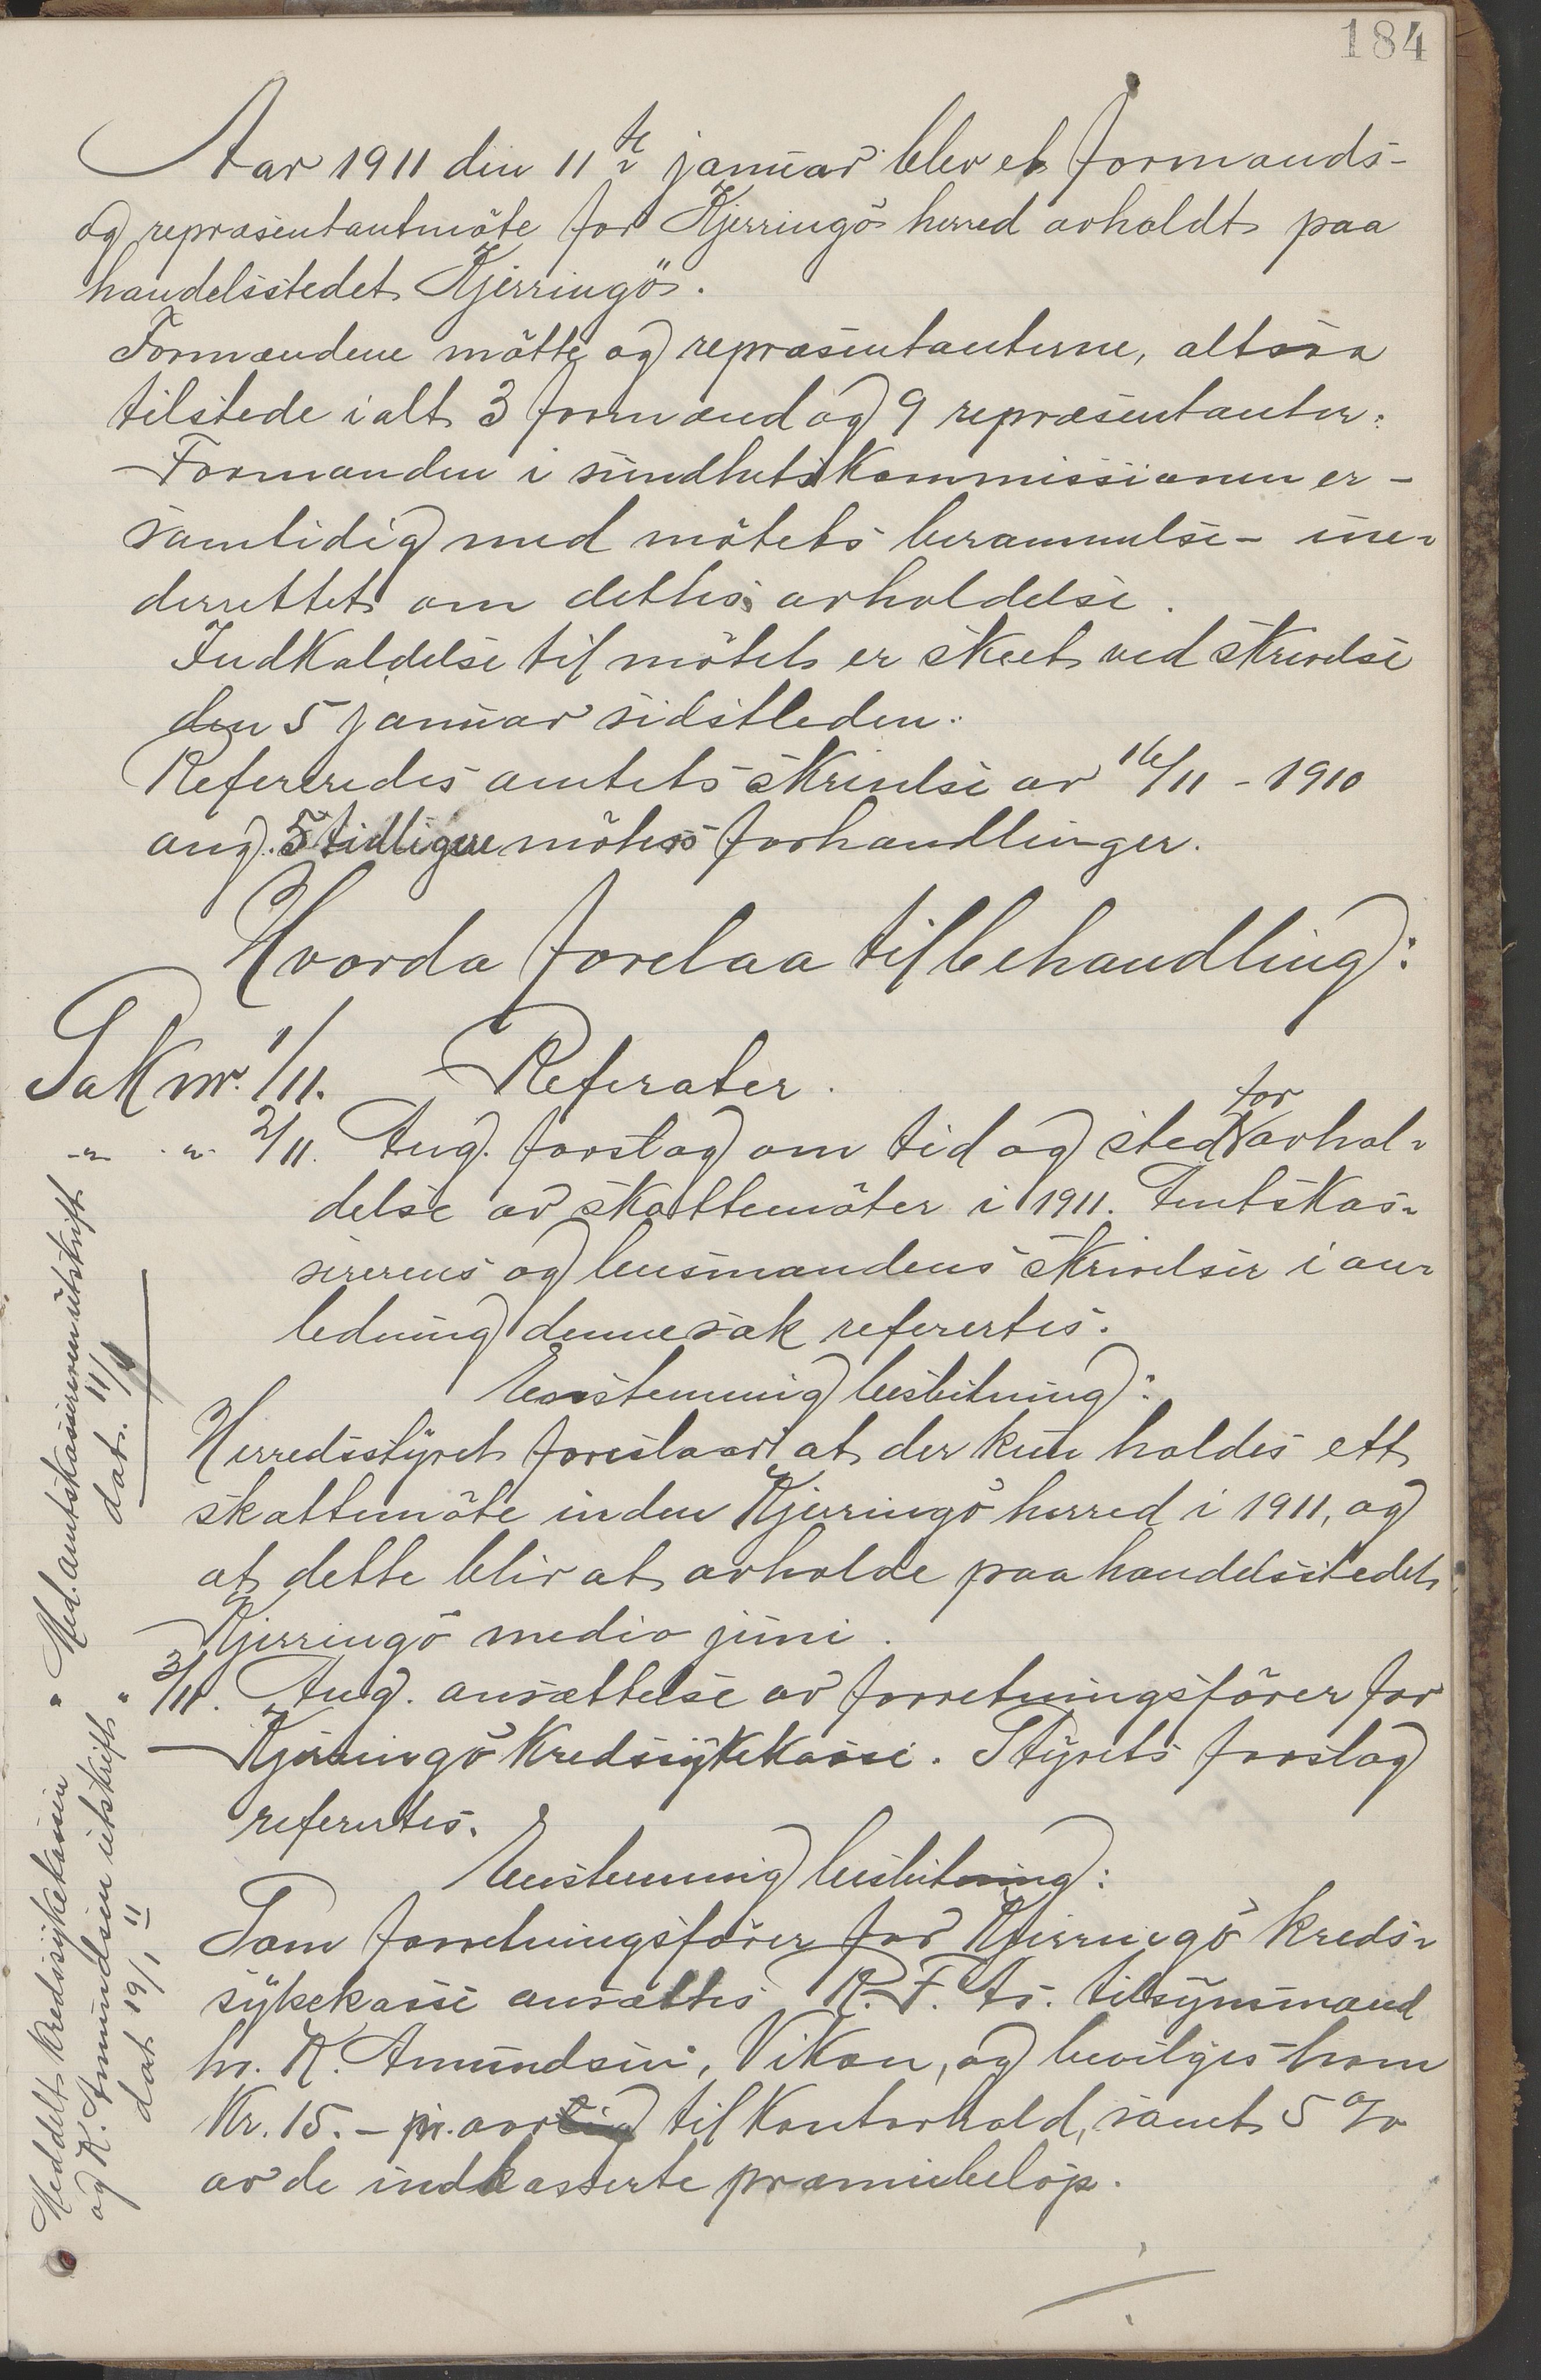 184
Aar 1911 den 11te januar blev et formands-
og repræsentantmöte for Kjerringö herred avholdt paa
handelsstedet Kjerringö.
Formændene mötte og repræsentanterne, altsaa
tilstede ialt 3 formænd og 9 repræsentanter.
Formanden i sundhetskommissionen er -
samtidig med mötets berammelse - une-
derrettet om dettes avholdelse.
Indkaldelse til mötet er skeet ved skrivelse
den 5 januar sidstleden.
Refereredes amtets skrivelse av 16/11 - 1910
ang. 5 tidligere möters forhandlinger.
Hvorda forelaa til behandling:
Sak nr. 1/11. Referater.
-"- -"- 2/11. Ang. forslag om tid og sted for avhol-
delse av skattemöter i 1911. Amtskas-
sererens og lensmandens skrivelser i an-
ledning denne sak referertes.
Enstemmig beslutning:
Herredsstyret foreslaar at der kun holdes ett
skattemöte inden Kjerringö herred i 1911, og
at dette blir at avholde paa handelsstedet
Kjerringö medio juni.
" " 3/11. Ang. ansættelse av forretningsförer for
Kjerringö Kredssykekasse. Styrets forslag
referertes.
Enstemmig beslutning:
Som forretningsförer for Kjerringö kreds-
sykekasse ansættes R. F. As. tilsynsmand
hr. K. Amundsen, Vikan, og bevilges ham
Kr. 15.- pr. aar til Kontorhold, samt 5 %
av de indkasserte præmiebelöp.
Med. amtskassereren utskrift
dat. 11/1
Meddelt Kredssykekassen
og K. Amundsen utskrift
dat 19/1 11